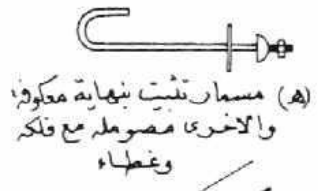 (هـ) مسمار تثبيت بنهاية معكوفة،
والاخرى مصوملة مع فلكة
وغطاء